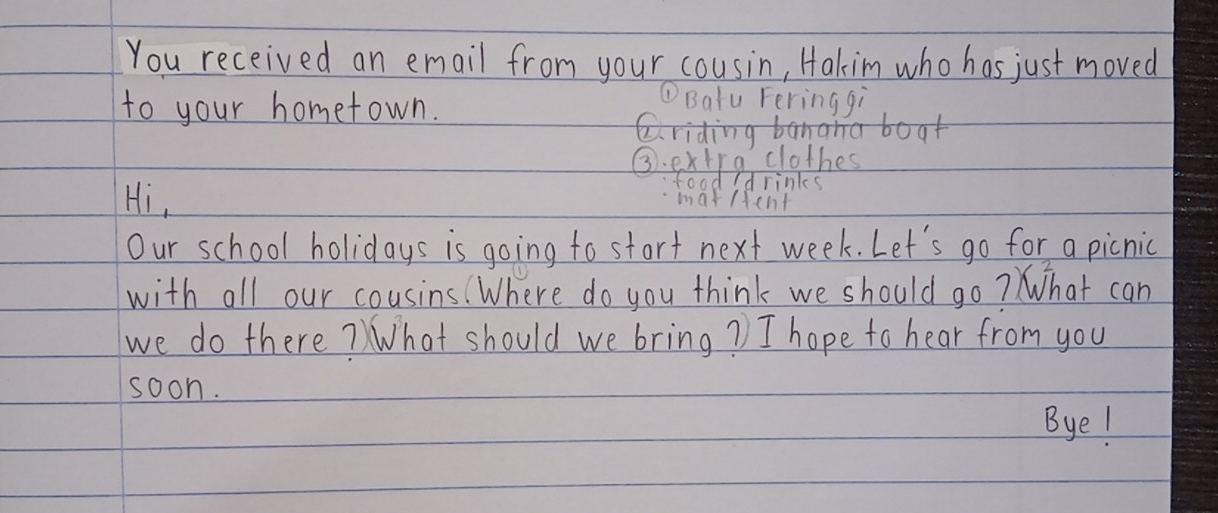 You received an email from your cousin, Hakim who has just moved
to your hometown.
① Batu Feringgi
②.riding banana boat
③.extra clothes
: food / drinks
· mat / tent
Hi,
Our school holidays is going to start next week. Let's go for a picnic
1
with all our cousins.(Where do you think we should go ?)(2 What can
we do there ?)(3 What should we bring ?) I hope to hear from you
soon.
Bye !